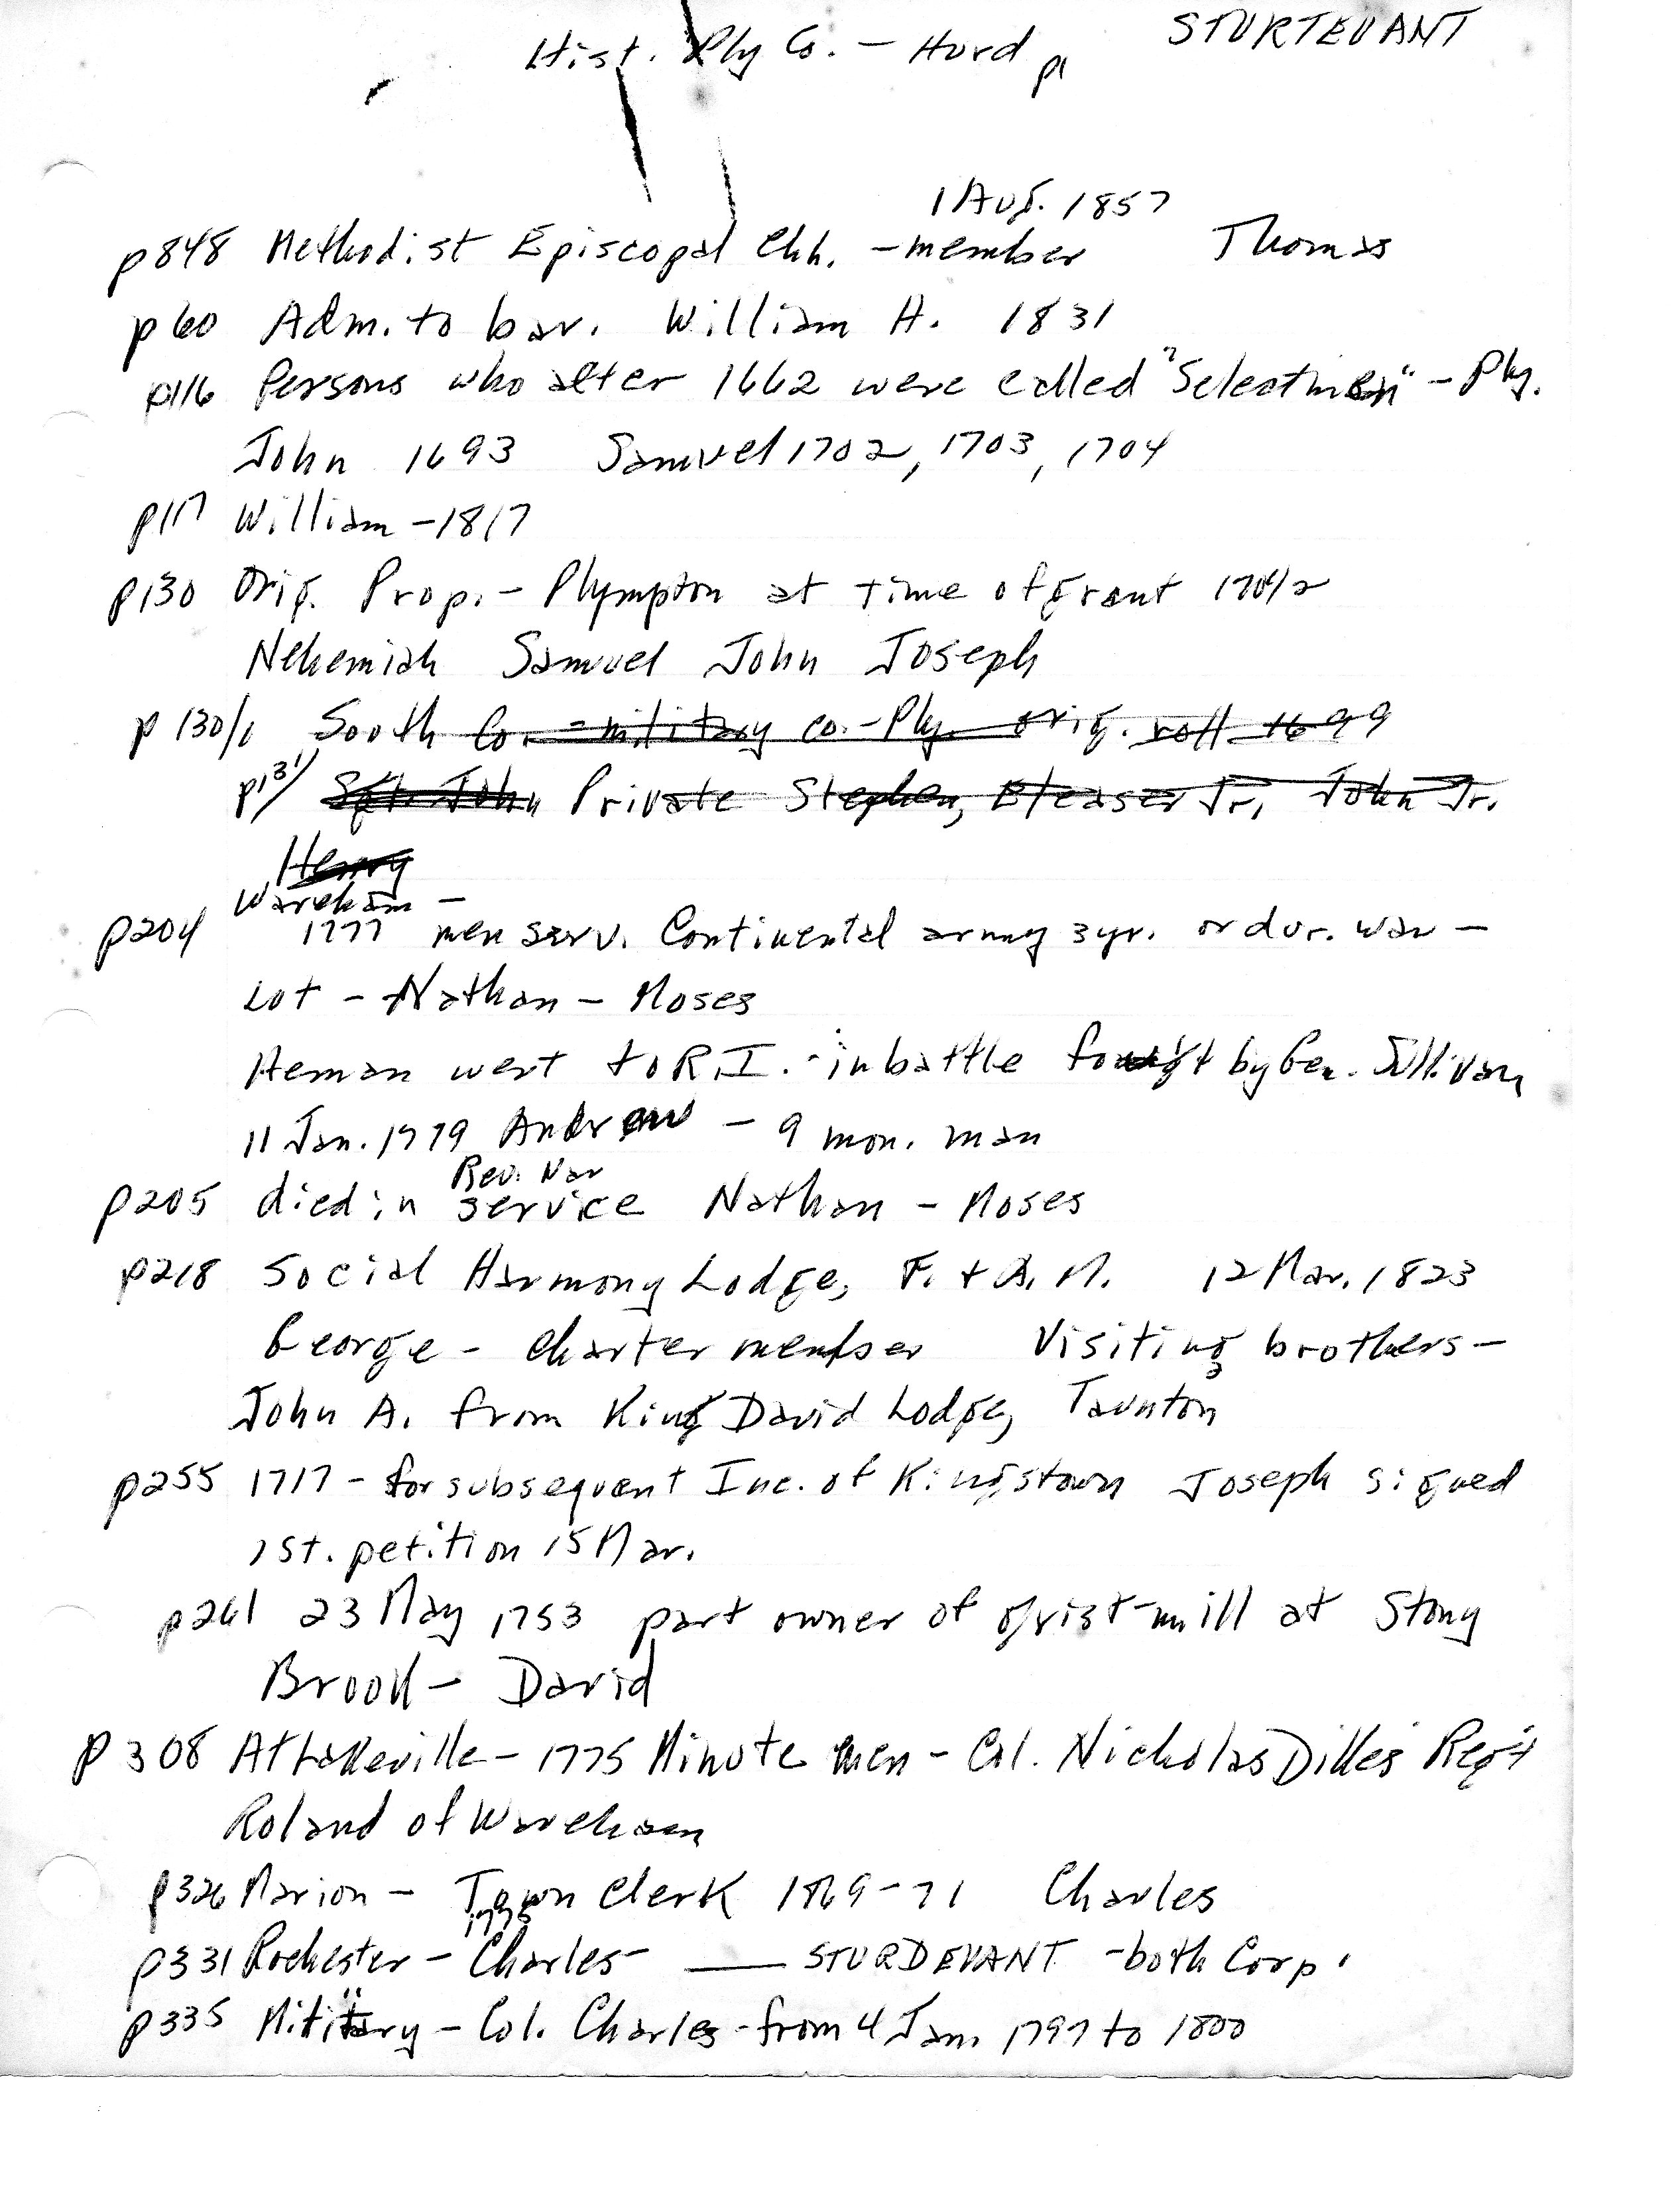 Hist. Ply Co. - Hurd p1 STURTEVANT
1 Aug. 1857
p848 Methodist Episcopal Chh. - member Thomas
p60 Adm. to bar. William H. 1831
p116 Persons who after 1662 were called "Selectmen" - Ply.
John 1693 Samuel 1702, 1703, 1704
p117 William - 1817
p130 Orig. Prop. - Plympton at time of grant 1701/2
Nehemiah Samuel John Joseph
p 130/1 South Co. - military co. - Ply. orig. roll 1699
p131/ Sgt. John Private Stephen, Eleaser Jr., John Jr.
Henry
Wareham -
p204 1777 men serv. Continental army 3yr. or dur. war -
Lot - Nathan - Moses
Heman went to R.I. - in battle fought by Gen. Sullivan
11 Jan. 1779 Andrew - 9 mon. man
Rev. War
p205 died in service Nathan - Moses
p218 Social Harmony Lodge, F. + A. M. 12 Mar. 1823
George - charter member Visiting brothers -
John A. from King David Lodge, Taunton
p255 1717 - for subsequent Inc. of Kingstown Joseph signed
1st. petition 15 Mar.
p261 23 May 1753 part owner of grist-mill at Stony
Brook - David
p 308 At Lakeville - 1775 Minute men - Col. Nicholas Dikes Reg't
Roland of Wareham
p326 Marion - Town Clerk 1869-71 Charles
1775
p331 Rochester - Charles - STURDEVANT - both Corp.
p335 Military - Col. Charles - from 4 Jan. 1797 to 1800